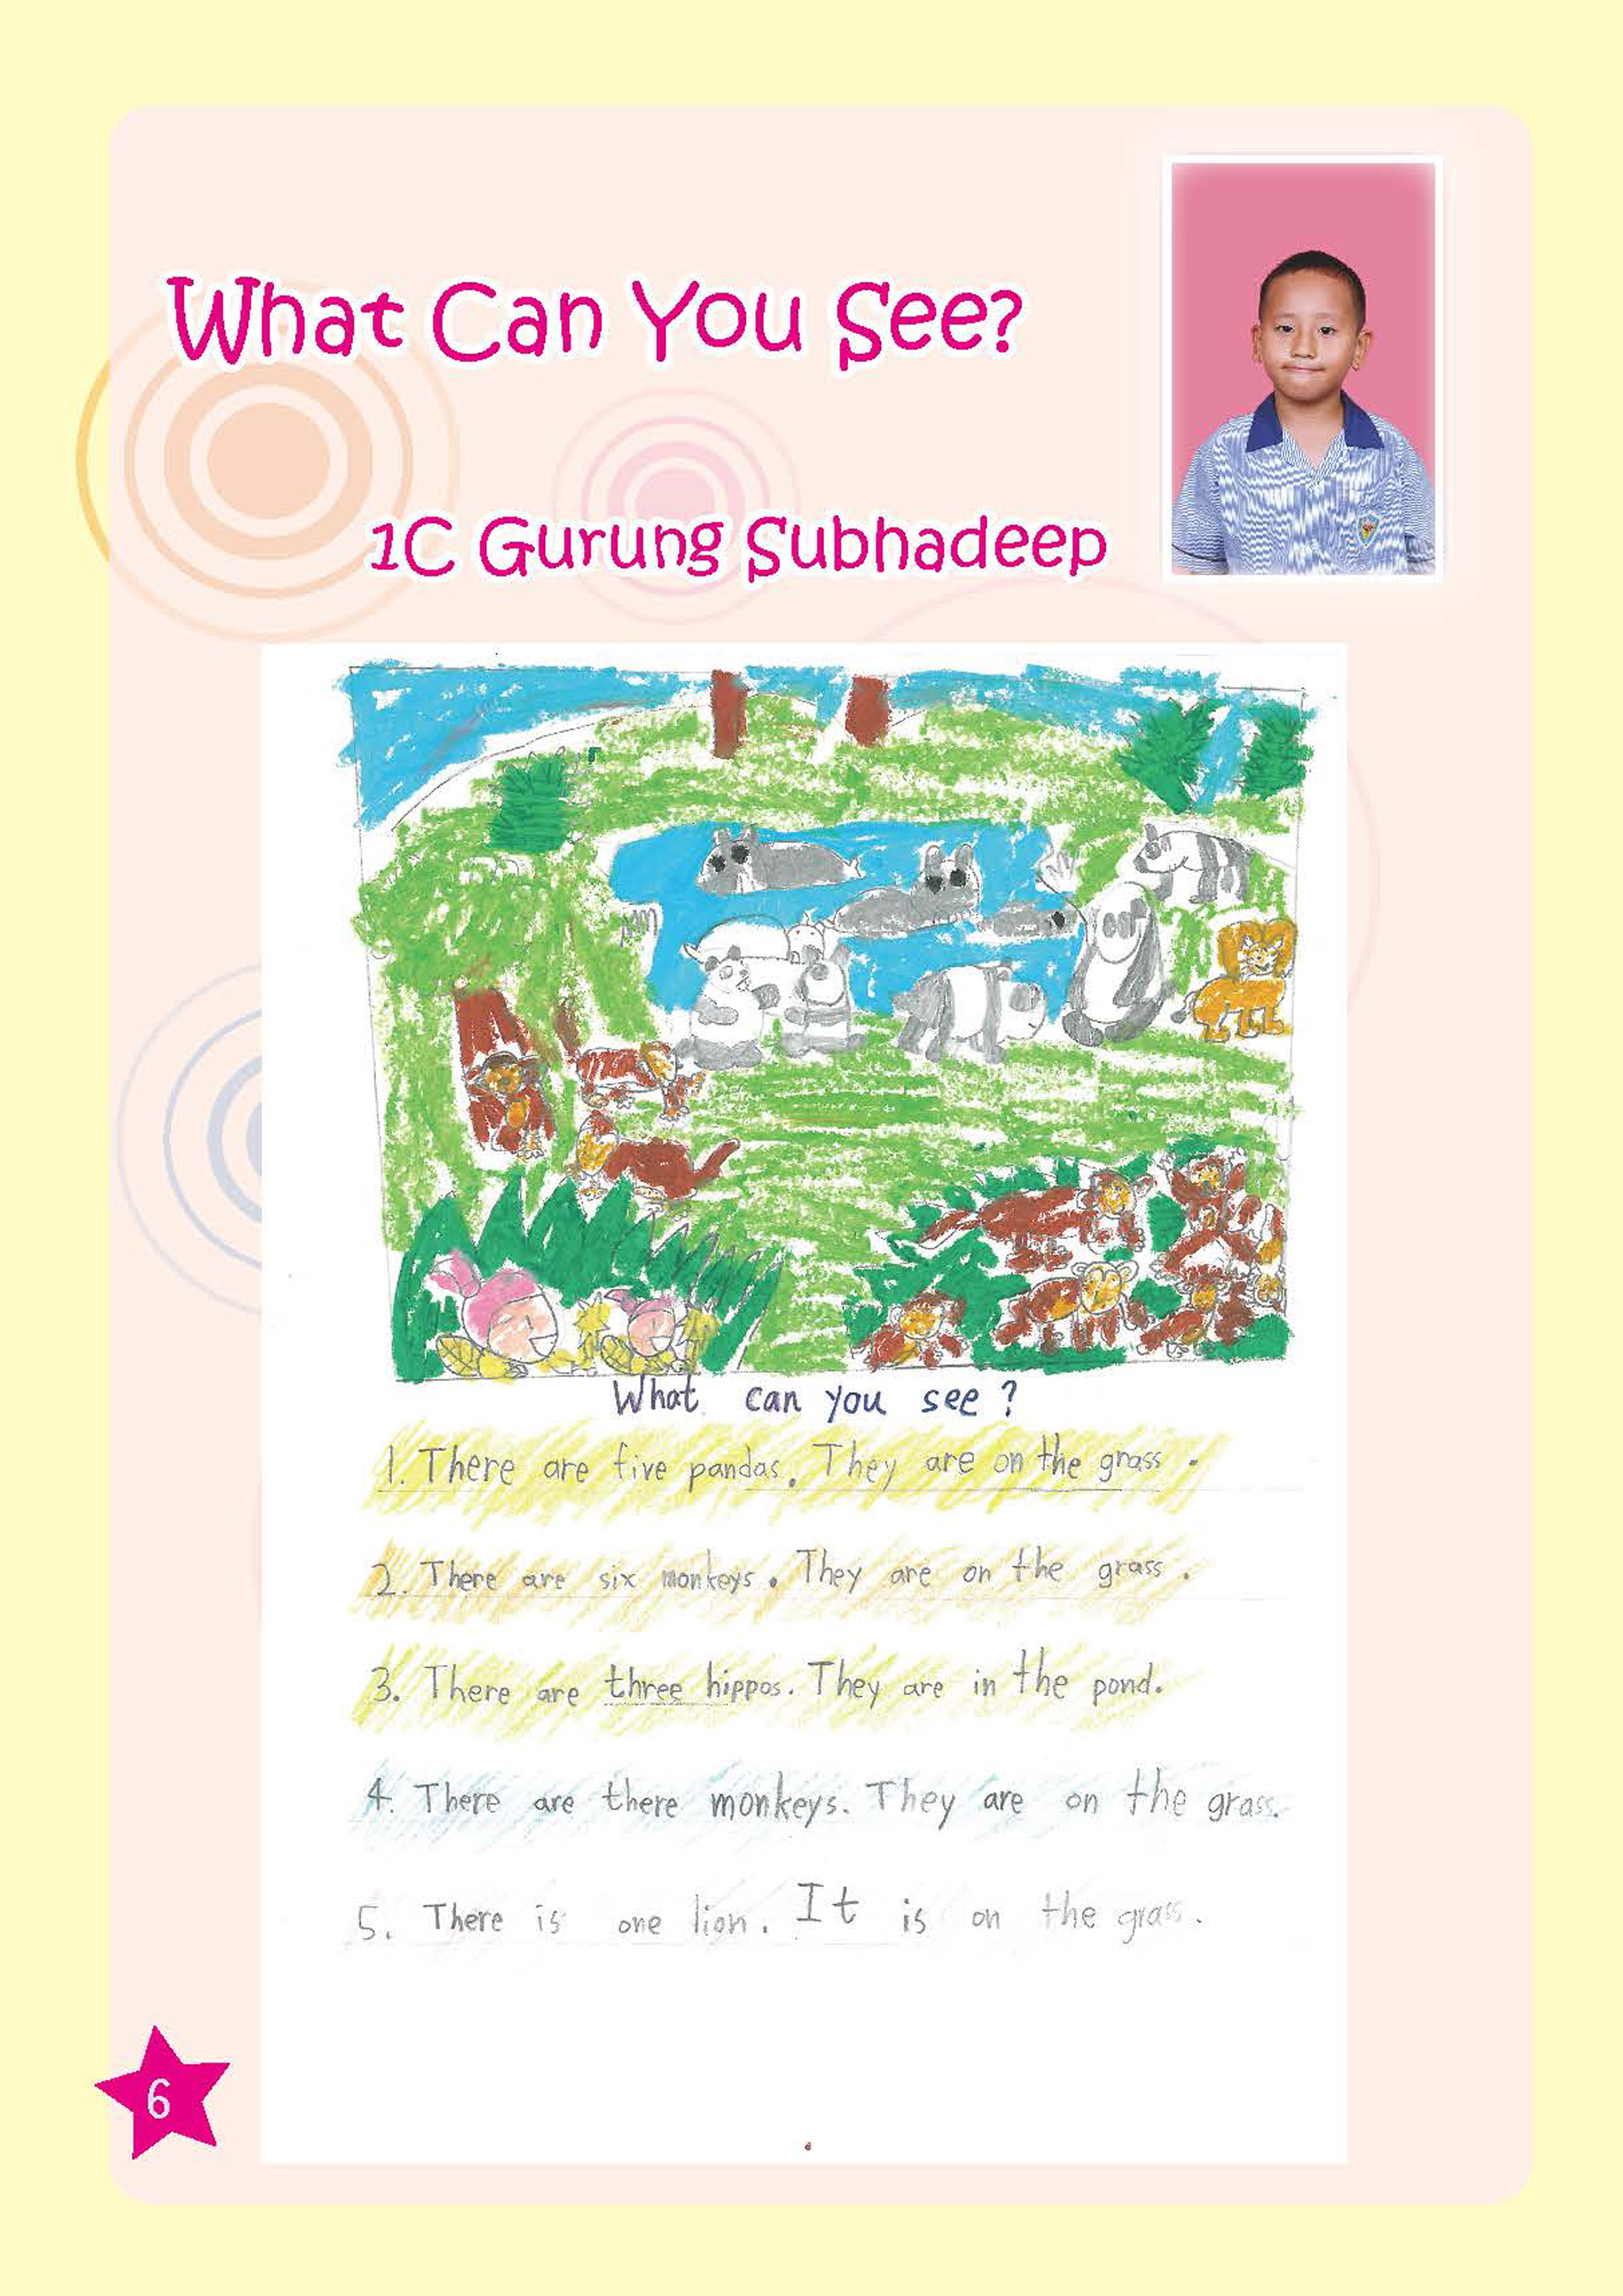 What Can You See?
1C Gurung Subhadeep
What can you see?
1. There are five pandas. They are on the grass.
2. There are six monkeys. They are on the grass.
3. There are three hippos. They are in the pond.
4. There are there monkeys. They are on the grass.
5. There is one lion. It is on the grass.
6